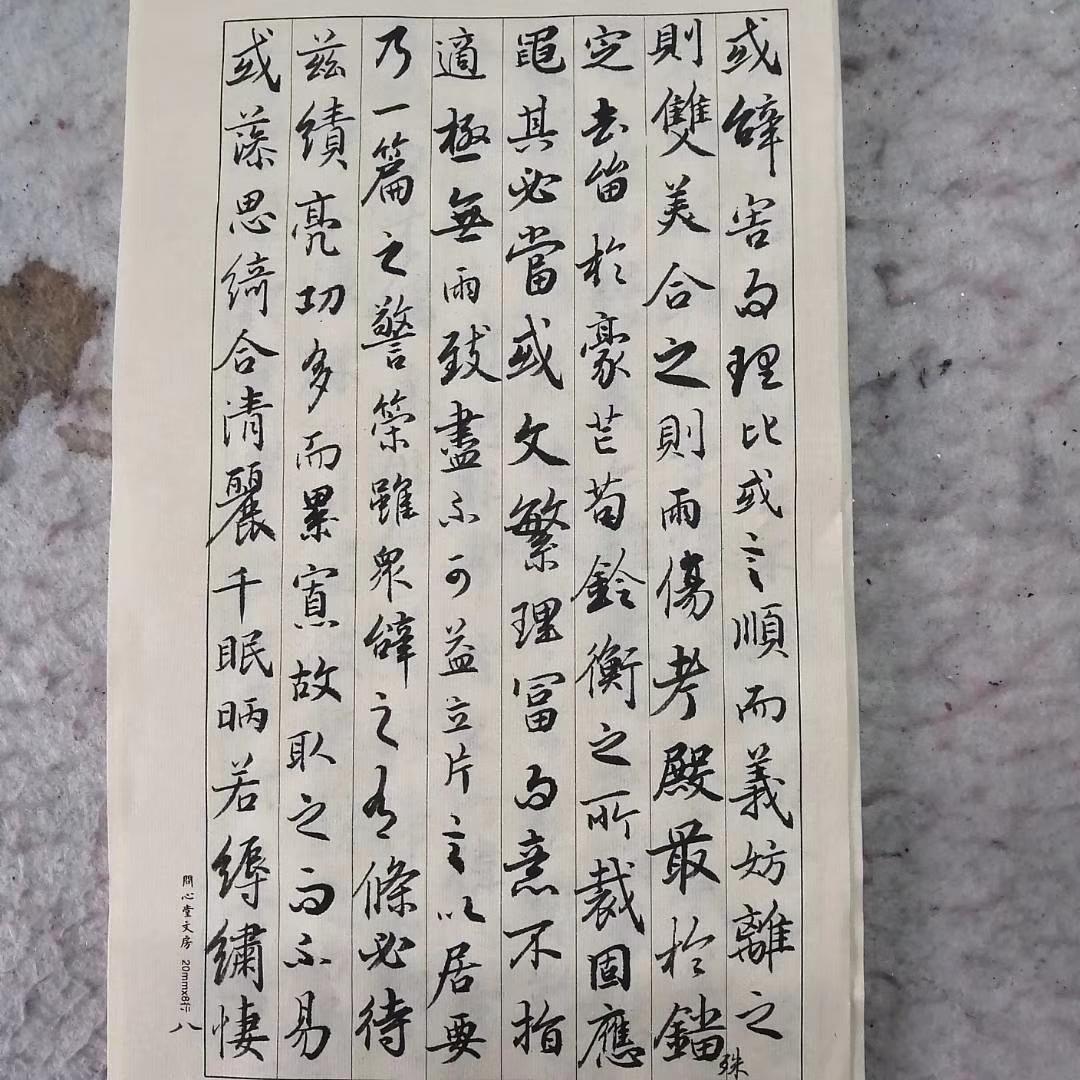 或辭害而理比或言順而義妨離之
則雙美合之則兩傷考殿最於錙
殊
定去留於豪芒苟銓衡之所裁固應
繩其必當或文繁理富而意不指
適極無兩致盡不可益立片言以居要
乃一篇之警策雖眾辭之有條必待
茲績亮功多而累寡故取之而不易
或藻思綺合清麗千眠炳若縟繡悽
問心堂文房 20mmx8行
八